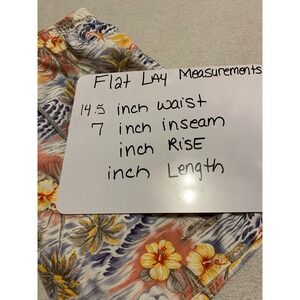 Flat Lay Measurements
14.5 inch waist
7 inch inseam
inch RISE
inch Length